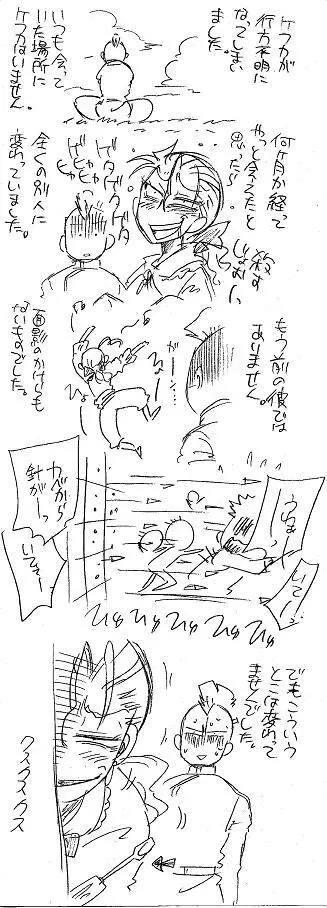 ケフカが
行方不明に
なってしまい
ました。
いつも会って
いた場所に
ケフカはいません。
何ヶ月か経って
やっと会えたと
思ったら
殺す
しかない
ゲタゲタゲタ
ゲヒャヒャヒャ
全くの別人に
変わっていました。
もう前の彼では
ありません。
がーん…
面影のかけらも
ないものでした。
うおっ
いてーっ
カベから
針がーっ
いてて
ひゅ ひゅ ひゅ ひゅ ひゅ
でもこういう
とこは変わって
ませんでした。
クスクスクス